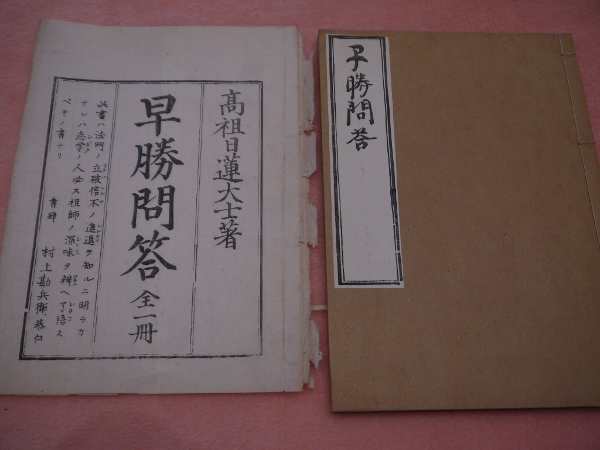 高祖日蓮大士著
早勝問答 全一冊
此書ハ法門ノ立破信不ノ進退ヲ知ルニ明ラカ
ナレハ志学ノ人必ス祖師ノ深味ヲ辨ヘ了悟ス
ベキノ書ナリ
書肆 村上勘兵衛 恭白
早勝問答